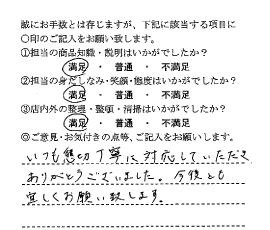 誠にお手数とは存じますが、下記に該当する項目に
○印のご記入をお願い致します。
①担当の商品知識・説明はいかがでしたか?
満足 ・ 普通 ・ 不満足
②担当の身だしなみ・笑顔・態度はいかがでしたか?
満足 ・ 普通 ・ 不満足
③店内外の整理・整頓・清掃はいかがでしたか?
満足 ・ 普通 ・ 不満足
◎ご意見・お気付きの点等、ご記入をお願いします。
いつも懇切丁寧に対応していただき
ありがとうございました。今後とも
宜しくお願い致します。